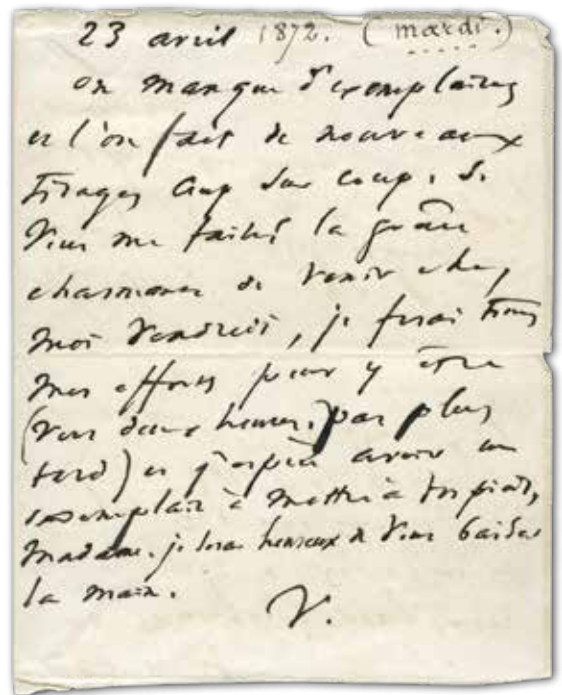 23 avril 1872. (mardi.)
on manque d'exemplaires
et l'on fait de nouveaux
tirages coup sur coup. Si
vous me faites la grâce
charmante de venir chez
moi vendredi, je ferai tous
mes efforts pour y être
(vers deux heures, pas plus
tard) et j'espère avoir un
exemplaire à mettre à vos pieds,
madame. je serai heureux de vous baiser
la main.
V.